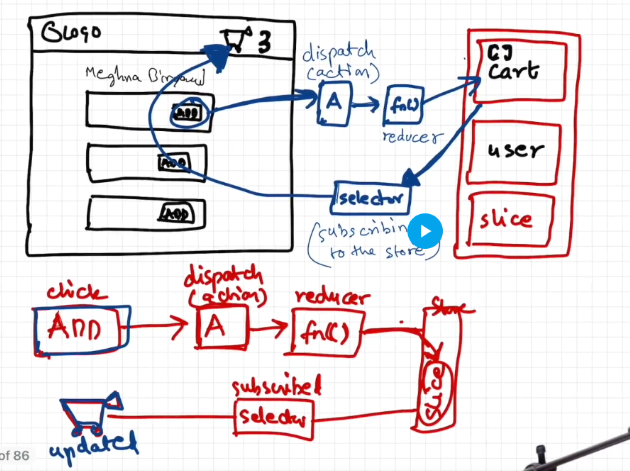 Logo
3
Meghna Biryani
ADD
ADD
ADD
dispatch
(action)
A
fn()
reducer
selector
(subscribing
to the store)
[]
Cart
user
slice
click
ADD
dispatch
(action)
A
reducer
fn()
Store
slice
subscribed
selector
updated
of 86